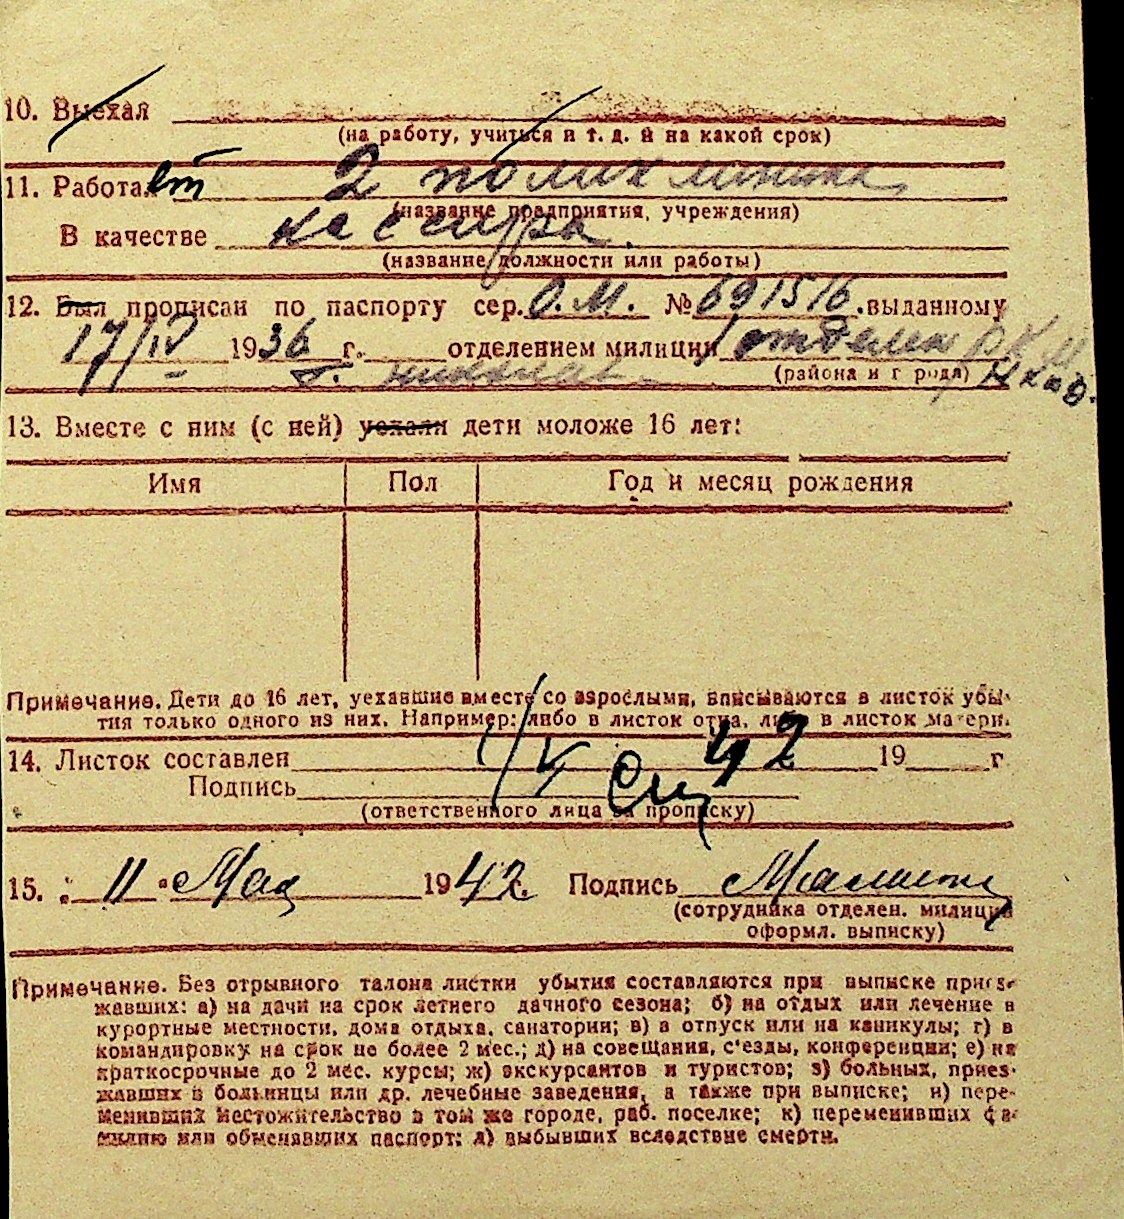 10. Выехал
(на работу, учиться и т. д. и на какой срок)
11. Работает 2 поликлиника
(название предприятия, учреждения)
В качестве кассира.
(название должности или работы)
12. Был прописан по паспорту сер. О.М. № 691516. выданному
17/IV 1936 г. отделением милиции
(района и города)
13. Вместе с ним (с ней) уехали дети моложе 16 лет:
Имя Пол Год и месяц рождения
Примечание. Дети до 16 лет, уехавшие вместе со взрослыми, вписываются в листок убы-
тия только одного из них. Например: либо в листок отца, либо в листок матери.
14. Листок составлен 1/V 42 19 г
Подпись
(ответственного лица за прописку)
15. " 11 " Мая 1942 Подпись
(сотрудника отделен. милиции
оформл. выписку)
Примечание. Без отрывного талона листки убытия составляются при выписке приез-
жавших: а) на дачи на срок летнего дачного сезона; б) на отдых или лечение в
курортные местности, дома отдыха, санатории; в) в отпуск или на каникулы; г) в
командировку на срок не более 2 мес.; д) на совещания, с'езды, конференции; е) на
краткосрочные до 2 мес. курсы; ж) экскурсантов и туристов; з) больных, приез-
жавших в больницы или др. лечебные заведения, а также при выписке; и) пере-
менивших местожительство в том же городе, раб. поселке; к) переменивших фа-
милию или обменявших паспорт; л) выбывших вследствие смерти.